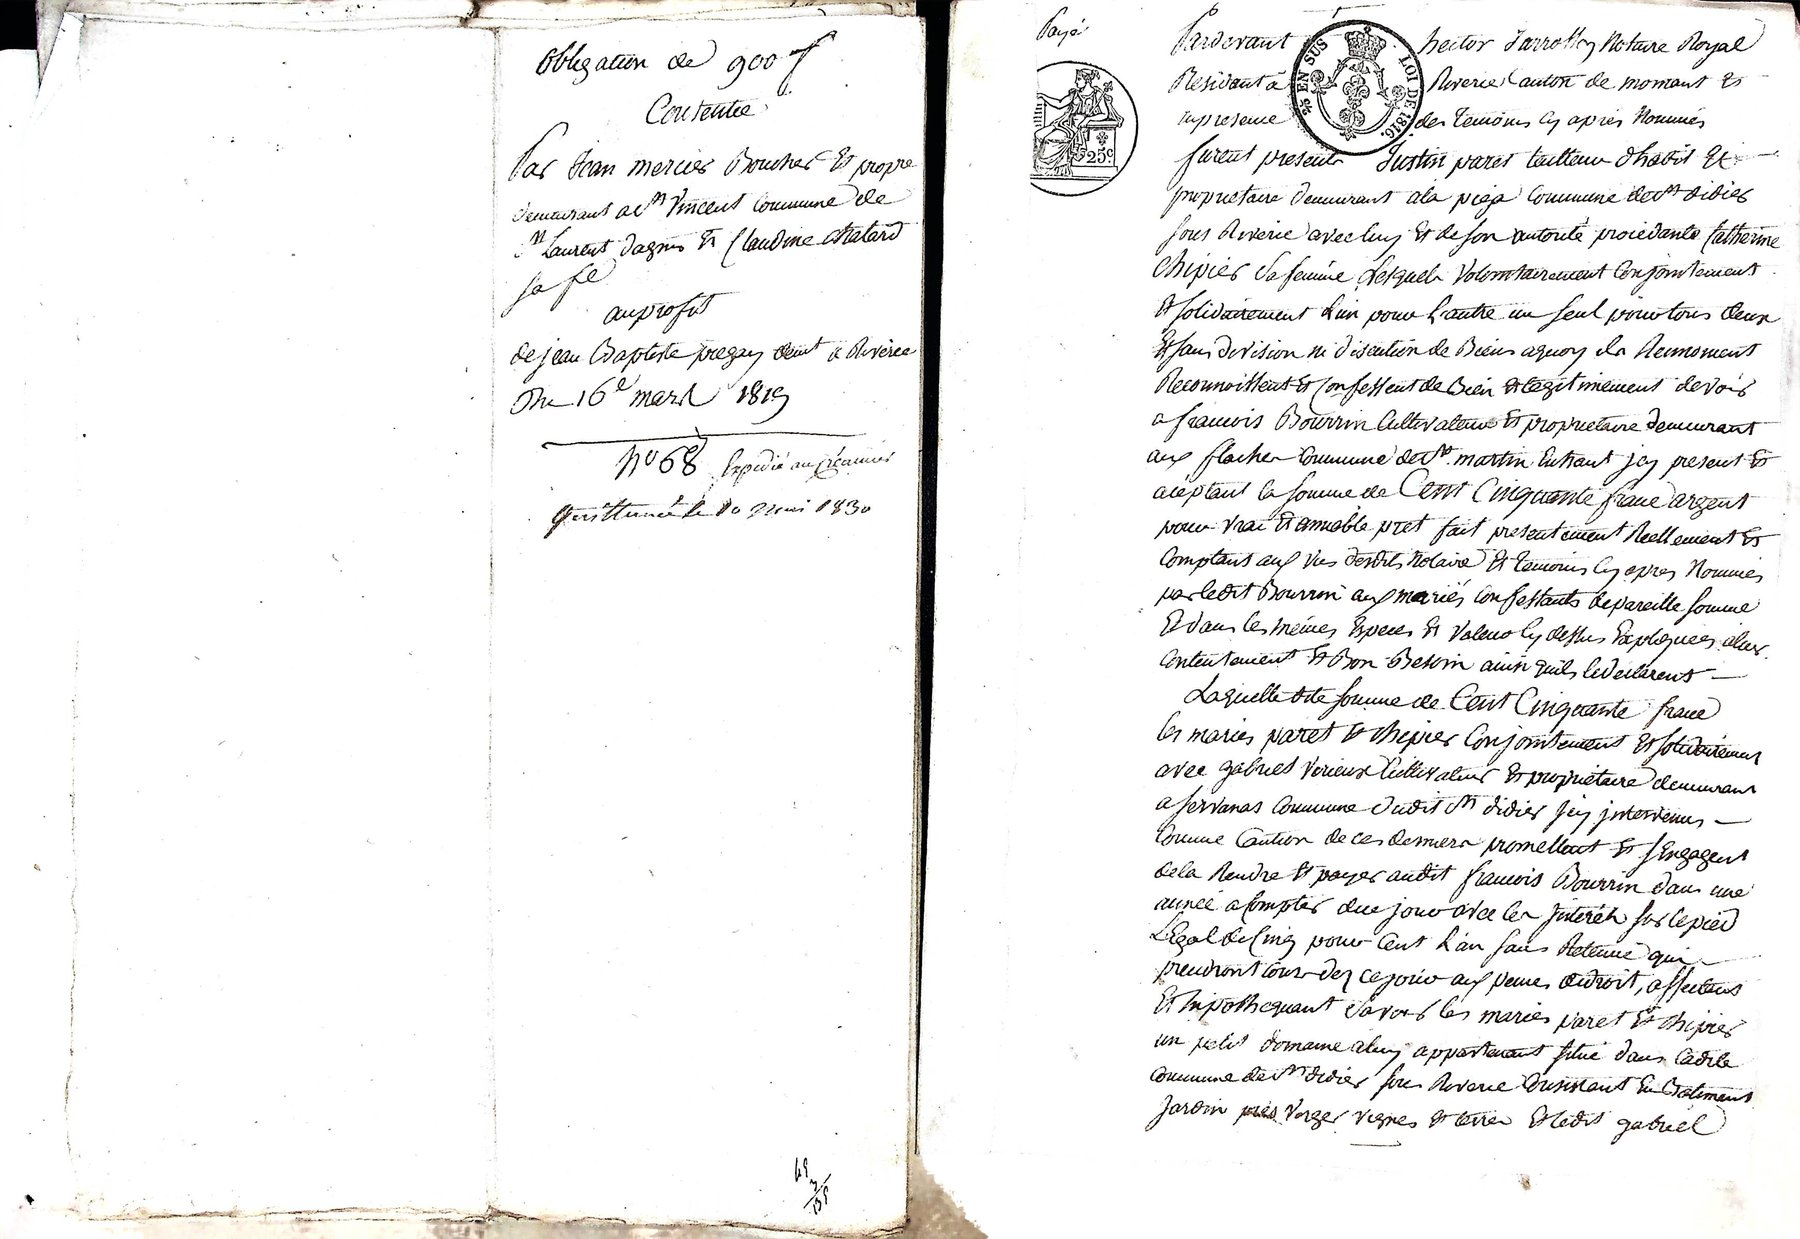 Obligation de 900 f
Consentie
Par Jean mercier Boucher Et propre
demeurant a st Vincent Commune de
st Laurent dagny Et Claudine chatard
sa fe
au profit
de jean Baptiste pregay demt a Riverie
Du 16e mars 1819
No 68 Expedié au créancier
quittancé le 10 mai 1830
49
3
Payé
Pardevant hector Jarrossay Notaire Royal
Residant a Riverie Canton de mornant Et
En presence des temoins cy apres Nommés
furent presents Justin paret tailleur d'habit Et
proprietaire demeurant a la pieja Commune de st didier
sous Riverie avec luy Et de son autorité procedante Catherine
chipier sa femme Lesquels Volontairement Conjointement
Et solidairement L'un pour L'autre un seul pour tous deux
Et sans division ni discution de Biens a quoy ils Renoncent
Reconnoissent Et Confessent de Bien Et legitimement devoir
a francois Bourrin Cultivateur Et proprietaire demeurant
aux flaches Commune de st martin En haut jcy present Et
aceptant la somme de Cent Cinquante francs argent
pour vrai Et amiable pret fait presentement Reellement Et
Comptant aux vus desdits Notaire Et temoins cy apres Nommés
par ledit Bourrin aux mariés Confessants de pareille somme
Et dans les mêmes Especes Et Valeur cy dessus Expliquées a leur
Contentement Et Bon Besoin ainsi qu'ils le declarent
Laquelle dite somme de Cent Cinquante francs
les mariés paret Et chipier Conjointement Et solidairement
avec gabriel Verieux Cultivateur Et proprietaire demeurant
a servanas Commune dudit st didier jcy jntervenus
Comme Caution de ces derniers promettent Et s'Engagent
de la Rendre Et payer audit francois Bourrin dans une
année a Compter de ce jour avec les jnterêts sur le pied
Légal de Cinq pour Cent L'an sans Retenue qui
prendront cours dez ce jour aux peines de droit, affectants
Et hipothequant savoir les mariés paret Et chipier
un petit domaine a luy appartenant situé dans ladite
Commune de st didier sous Riverie Consistant En Batiments
Jardin près Verger vignes Et terres Et ledit gabriel
2/5 EN SUS LOI DE 1816.
25c